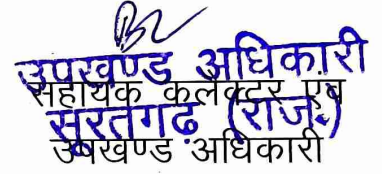 उपखण्ड अधिकारी
सहायक कलैक्टर एवं
सूरतगढ़ (राज.)
उपखण्ड अधिकारी